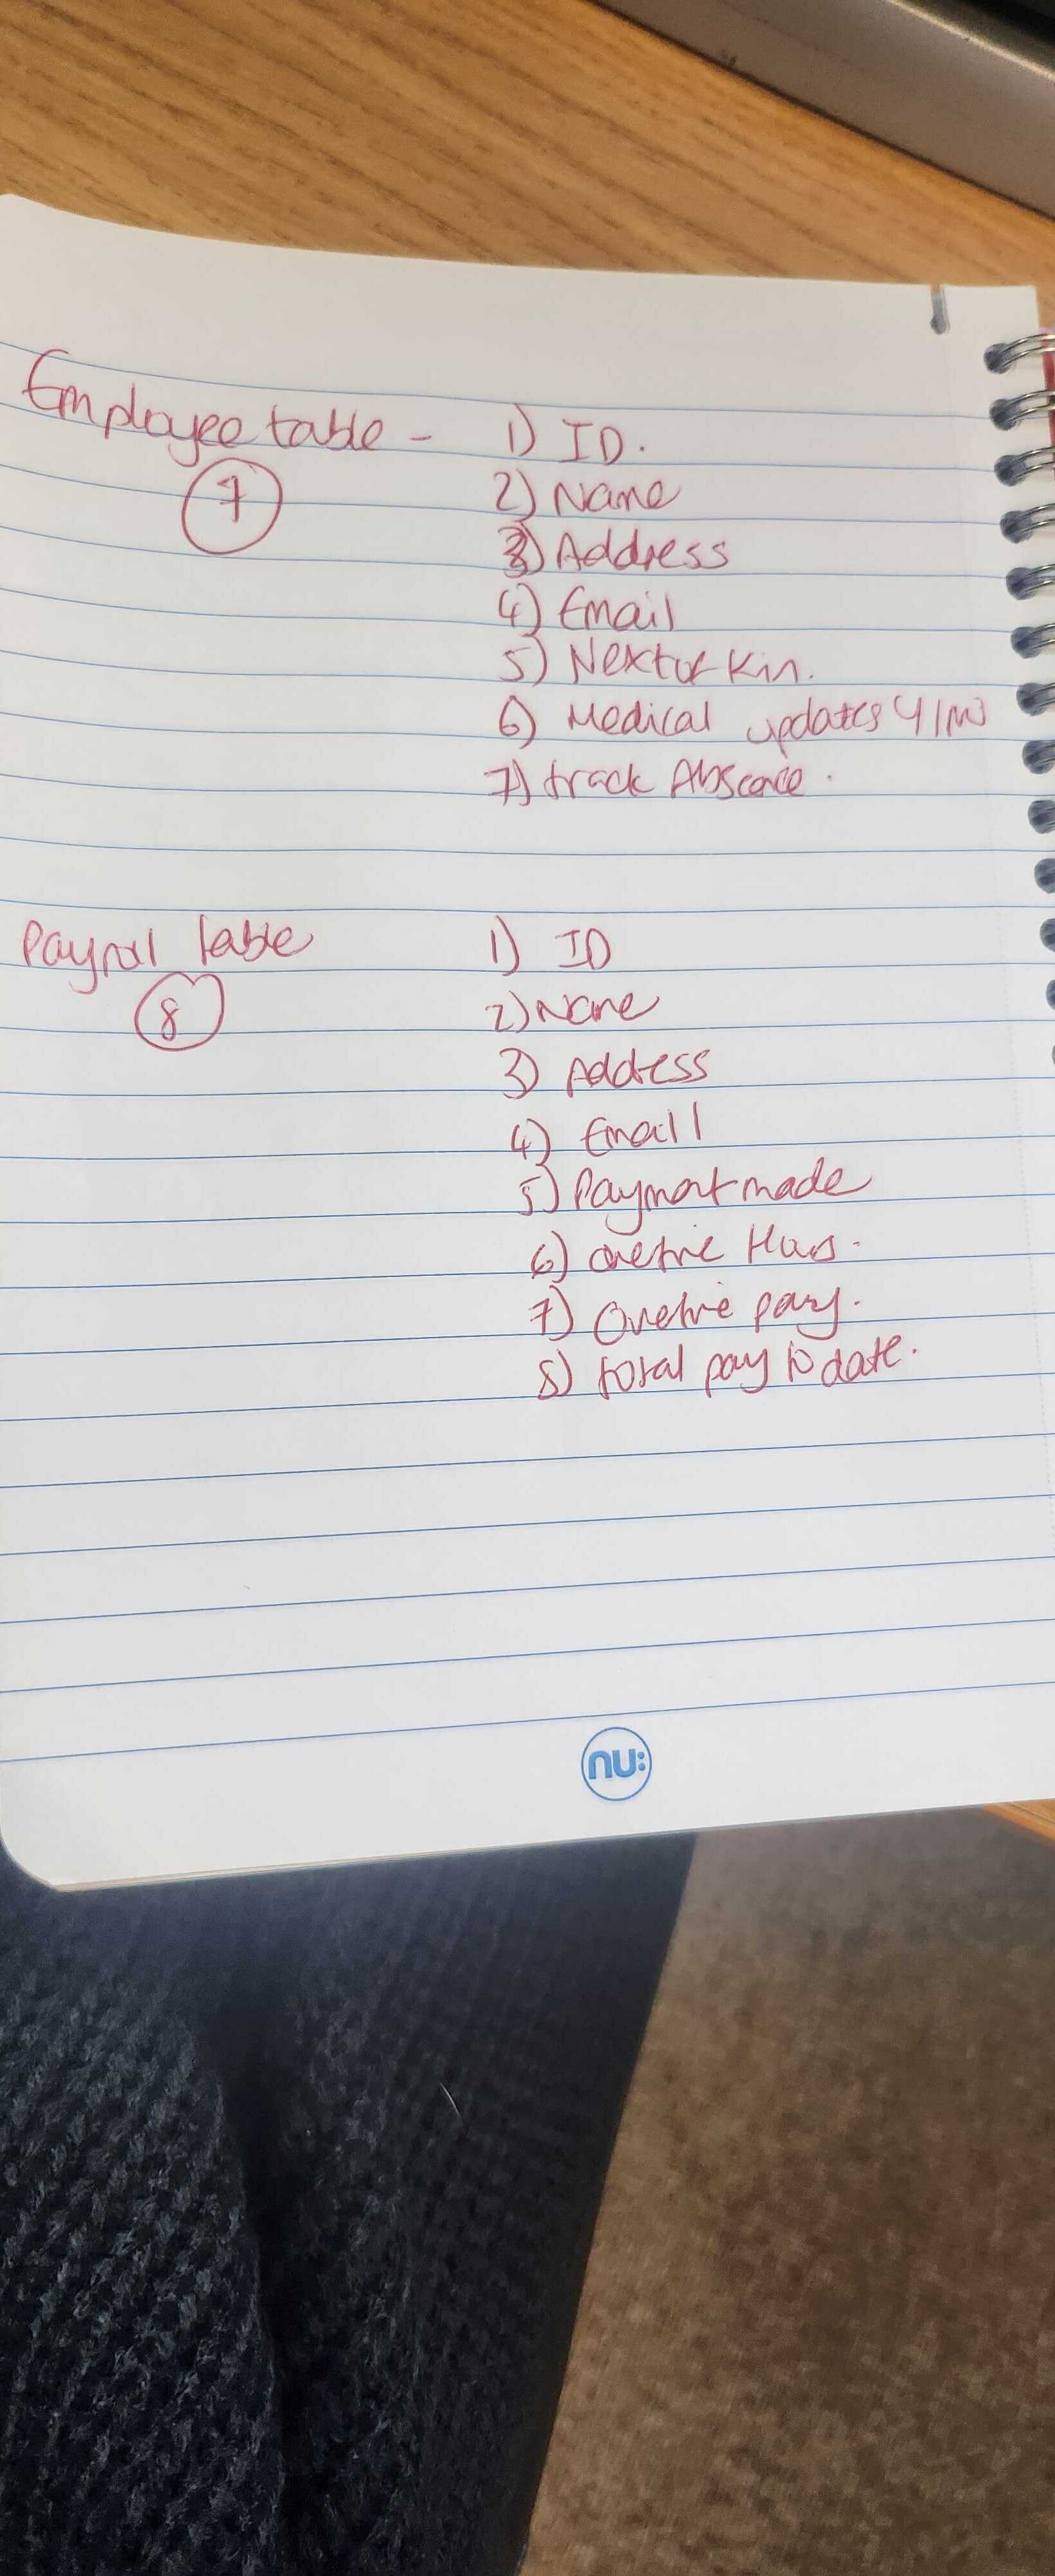 Employee table - 1) ID.
7
2) Name
3) Address
4) Email
5) Next of Kin.
6) Medical updates Y/N
7) track Abscence.
Payroll table 1) ID
8
2) Name
3) Address
4) Email
5) Payment made
6) overtime Hours.
7) Overtime pay.
8) total pay to date.
nu: